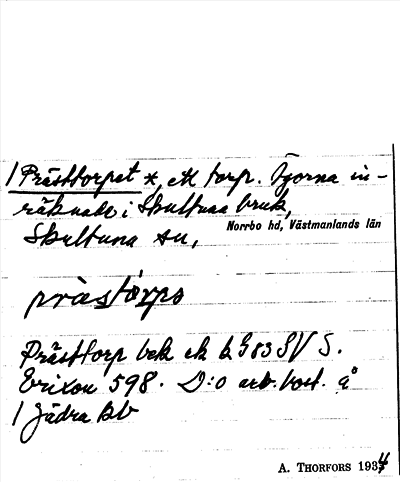 / Prästtorpet *, ett torp. Ägorna in-
räknade i Skultuna bruk,
Norrbo hd, Västmanlands län
Skultuna sn,
prästorpo
Prästtorp bek ek b G 83 SV S.
Erixon 598. D:o arb.bost. å
/ Jädra bb
A. THORFORS 1934